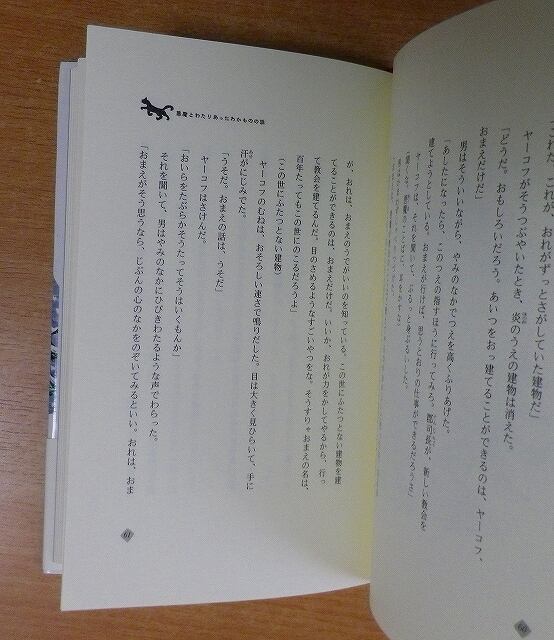 これだ、これが、おれがずっとさがしていた建物だ」
ヤーコフがそうつぶやいたとき、炎のうえの建物は消えた。
「どうだ。おもしろいだろう。あいつをおっ建てることができるのは、ヤーコフ、
おまえだけだ」
男はそういいながら、やみのなかでつえを高くふりあげた。
「あしたになったら、このつえの指すほうに行ってみろ。郡司長が、新しい教会を
建てようとしている。おまえが行けば、思うとおりの仕事ができるだろうよ」
ヤーコフは、それを聞いて、ぶるっと身ぶるいした。
60
悪魔とわたりあったわかものの話
が、おれは、おまえのうでがいいのを知っている。この世にふたつとない建物を建
てることができるのは、おまえだけだ。いいか、おれが力をかしてやるから、行っ
て教会を建てるんだ。目のさめるようなすごいやつをな。そうすりゃおまえの名は、
百年たってもこの世にのこるだろうよ」
(この世にふたつとない建物)
ヤーコフのむねは、おそろしい速さで鳴りだした。目は大きく見ひらいて、手に
汗がにじみでた。
「うそだ。おまえの話は、うそだ」
ヤーコフはさけんだ。
「おいらをたぶらかそうたってそうはいくもんか」
それを聞いて、男はやみのなかにひびきわたるような声でわらった。
「おまえがそう思うなら、じぶんの心のなかをのぞいてみるといい。おれは、おま
61